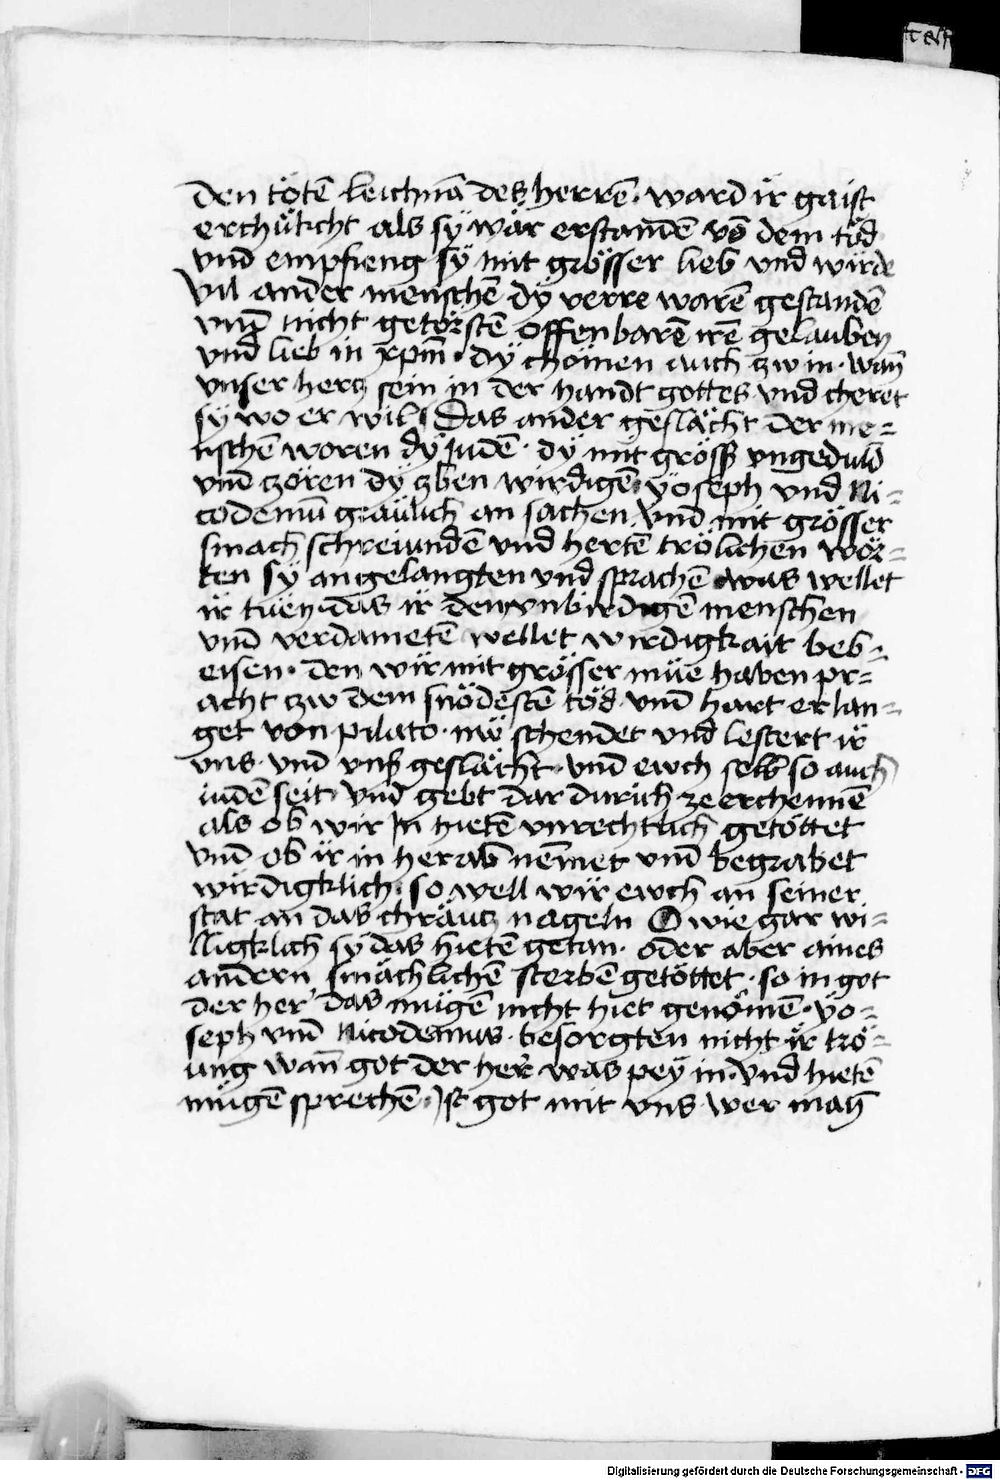 den tötē leichnā des herrē · ward ir gaist
erchükcht als sy wär erstandē vō dem töd
vnd empfieng sy mit grösser lieb vnd wirde
Vil ander menschē dy verre warē gestandē
vnd nicht getörstē offenbarē irē gelauben
vnd lieb in xp̄m · dy chömen auch zw in · wan̄
vnser hercz sein in der handt gottes vnd cheret
sy wo er wil Das ander geslächt der me=
nschē woren dy judē · dy mit gröss vngeduld
vnd zören dy zben wirdigē yoseph vnd Ni=
codemū gräülich an sachen · vnd mit grösser
smach schreiundē vnd hertē trölichen wör=
ten sy angelangten vnd sprachē was wellet
ir tuen · das ir dem vnbirdigē menschen
vnd verdametē wellet wirdigkait beb=
eisen · den wir mit grösser müe haben pr=
acht zw dem snödestē töd · vnd hart erlan=
get von pilato · nw schendet vnd lestert ir
vns · vnd vnss geslächt · vnd ewch selb so auch
judē seit · vnd gebt dar durich ze erchennē
als ob wir jn hietē vnrechtlich getöttet
vnd ob ir in herab nēmet vnd begrabet
wirdigklich · so well wir ewch an seiner
stat an das chräucz nageln O wie gar wi=
lligklich sy das hietē getan · oder aber aines
andern smächlichē sterbē getöttet · so in got
der her das mügē nicht hiet genömē · yo=
seph vnd Nicodemus · besorgten nicht ir trö=
ung wan̄ got der her was pey in · vnd hietē
mügē sprechē · Ist got mit vns wer mag
Digitalisierung gefördert durch die Deutsche Forschungsgemeinschaft - DFG